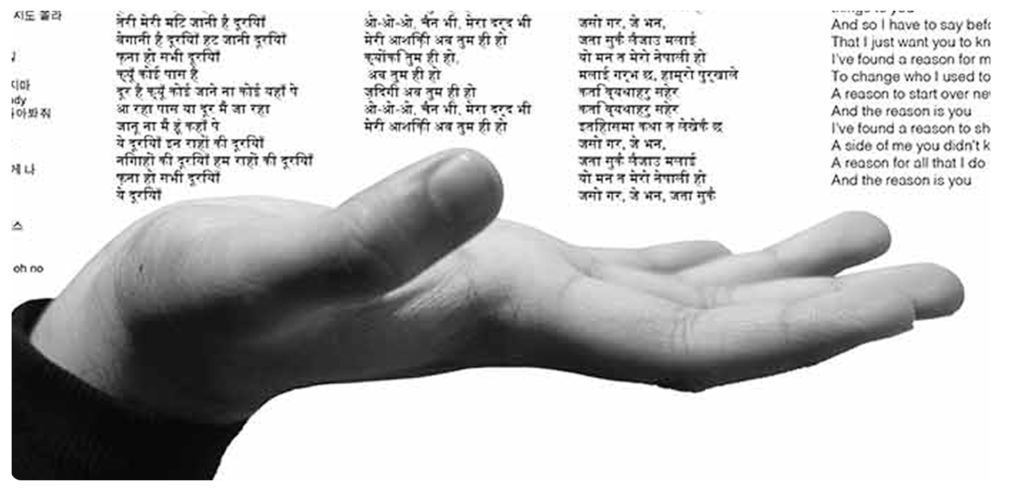 몰라
지마
게 나
스
oh no
तेरी मेरी मटि जानी है दूरयिाँ
बेगानी है दूरयिाँ हट जानी दूरयिाँ
फ़ना हो सभी दूरयिाँ
क्यूँ कोई पास है
दूर है क्यूँ कोई जाने ना कोई यहाँ पे
आ रहा पास या दूर मैं जा रहा
जानू ना मैं हूं कहाँ पे
ये दूरयिाँ इन राहों की दूरयिाँ
नगिाहों की दूरयिाँ हम राहों की दूरयिाँ
फ़ना हो सभी दूरयिाँ
ये दूरयिाँ
ओ-ओ-ओ, चैन भी, मेरा दर्द भी
मेरी आशक़िी अब तुम ही हो
क्योंकि तुम ही हो,
अब तुम ही हो
ज़दिगी अब तुम ही हो
ओ-ओ-ओ, चैन भी, मेरा दर्द भी
मेरी आशक़िी अब तुम ही हो
जसो गर, जे भन,
जता सुकै लैजाउ मलाई
यो मन त मेरो नेपाली हो
मलाई गर्भ छ, हाम्रो पुर्खाले
सहेर
सहेर
इतहिासमा कथा त लेखेकै छ
जसो गर, जे भन,
जता सुकै लैजाउ मलाई
यो मन त मेरो नेपाली हो
जसो गर, जे भन, जता सुकै
things to you
And so I have to say befo
That I just want you to kn
I've found a reason for m
To change who I used to
A reason to start over ne
And the reason is you
I've found a reason to sh
A side of me you didn't k
A reason for all that I do
And the reason is you